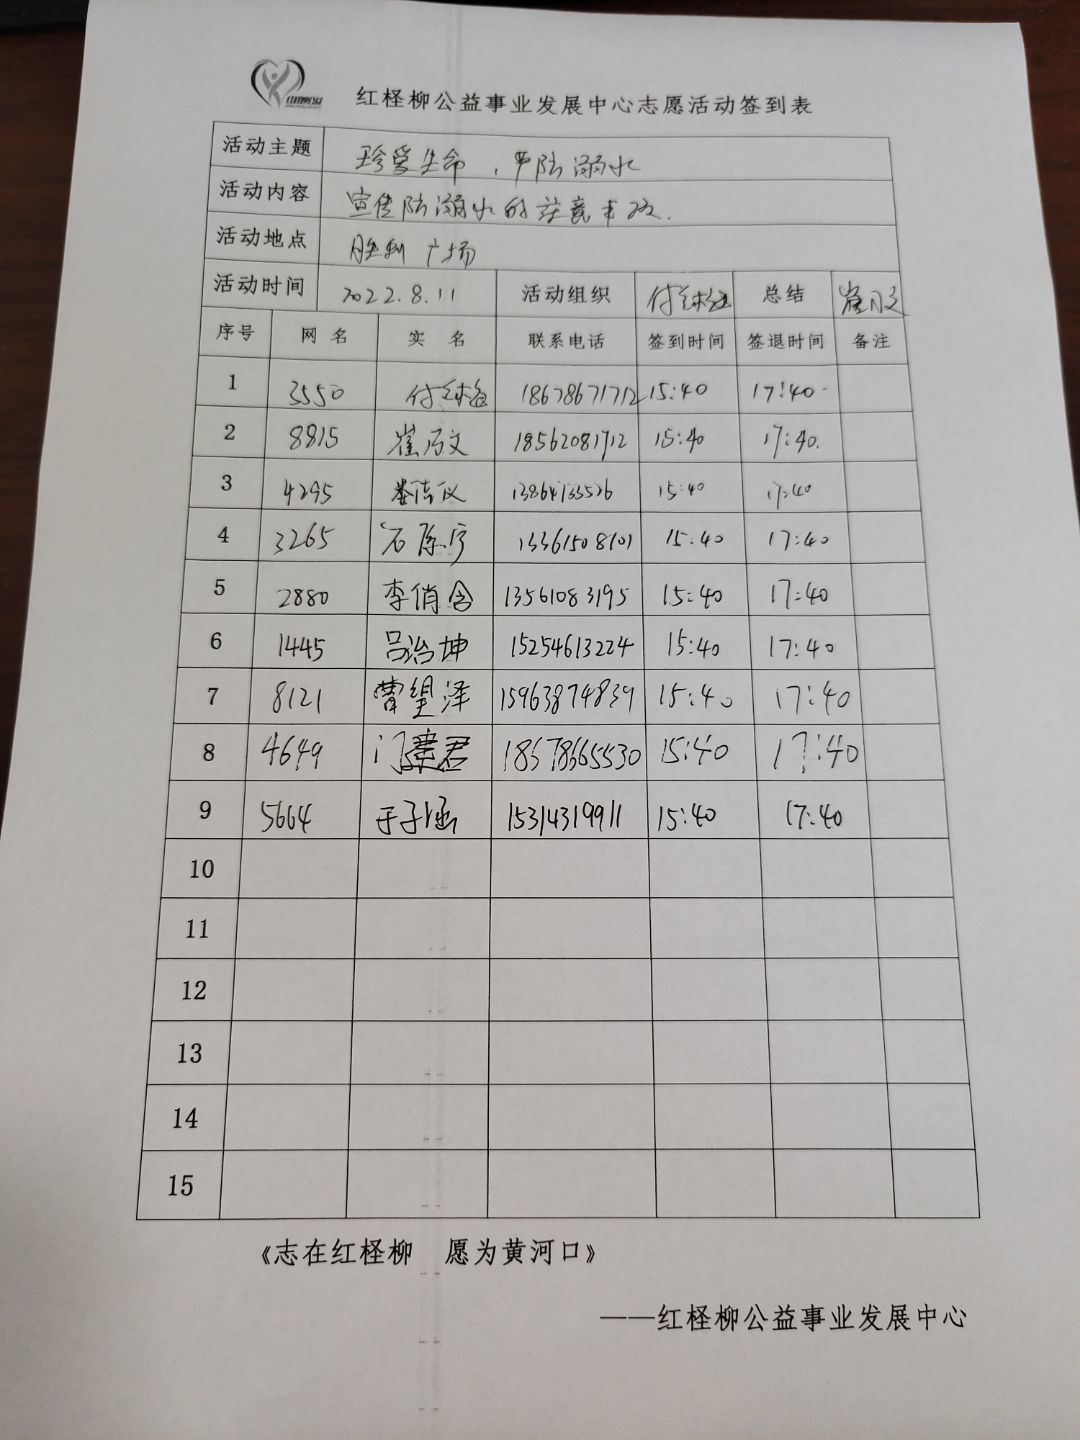 红柽柳公益事业发展中心志愿活动签到表
活动主题 珍爱生命，严防溺水
活动内容 宣传防溺水的注意事项.
活动地点 胜利广场
活动时间 2022.8.11 活动组织 付 总结 崔乃文
序号 网名 实名 联系电话 签到时间 签退时间 备注
1 3550 付 18678671712 15:40 17:40
2 8815 崔乃文 18562081712 15:40 17:40.
3 4295 13864733526 15:40 17:40
4 3265 石 13361508101 15:40 17:40
5 2880 李俏含 13561083195 15:40 17:40
6 1445 吕治坤 15254613224 15:40 17:40
7 8121 曹望泽 15963874839 15:40 17:40
8 4649 门建君 18678665530 15:40 17:40
9 5664 于子涵 15314319911 15:40 17:40
10
11
12
13
14
15
《志在红柽柳 愿为黄河口》
——红柽柳公益事业发展中心